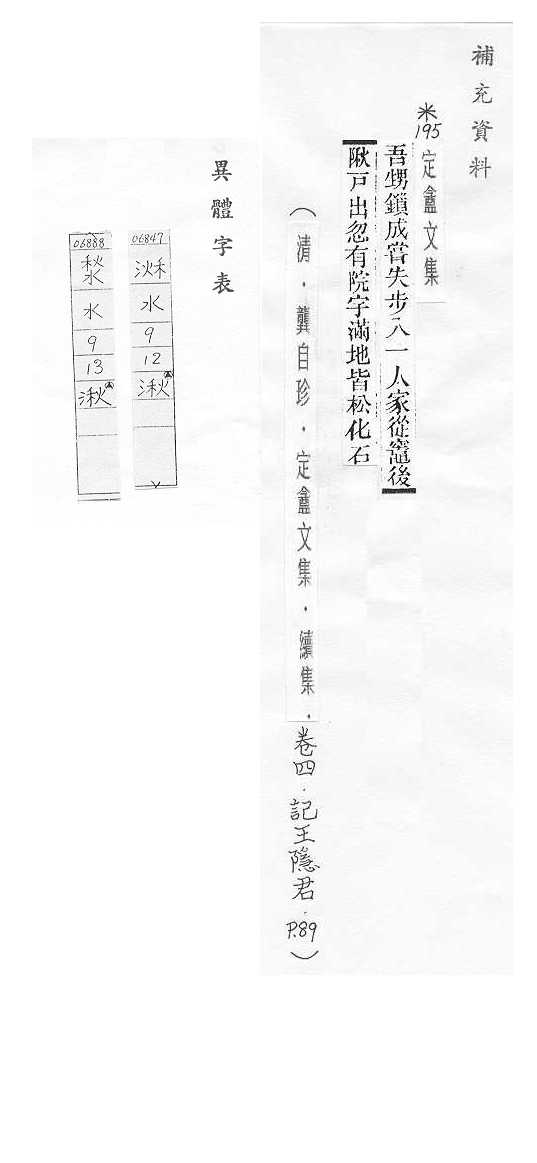 補充資料
米195 定盦文集
吾甥鎖成嘗失步入一人家從竈後
戶出忽有院字滿地皆松化石
（清．龔自珍．定盦文集．續集．卷四．記王隱君．P.89）
異體字表
06847
水
9
12
湫
06888
水
9
13
湫